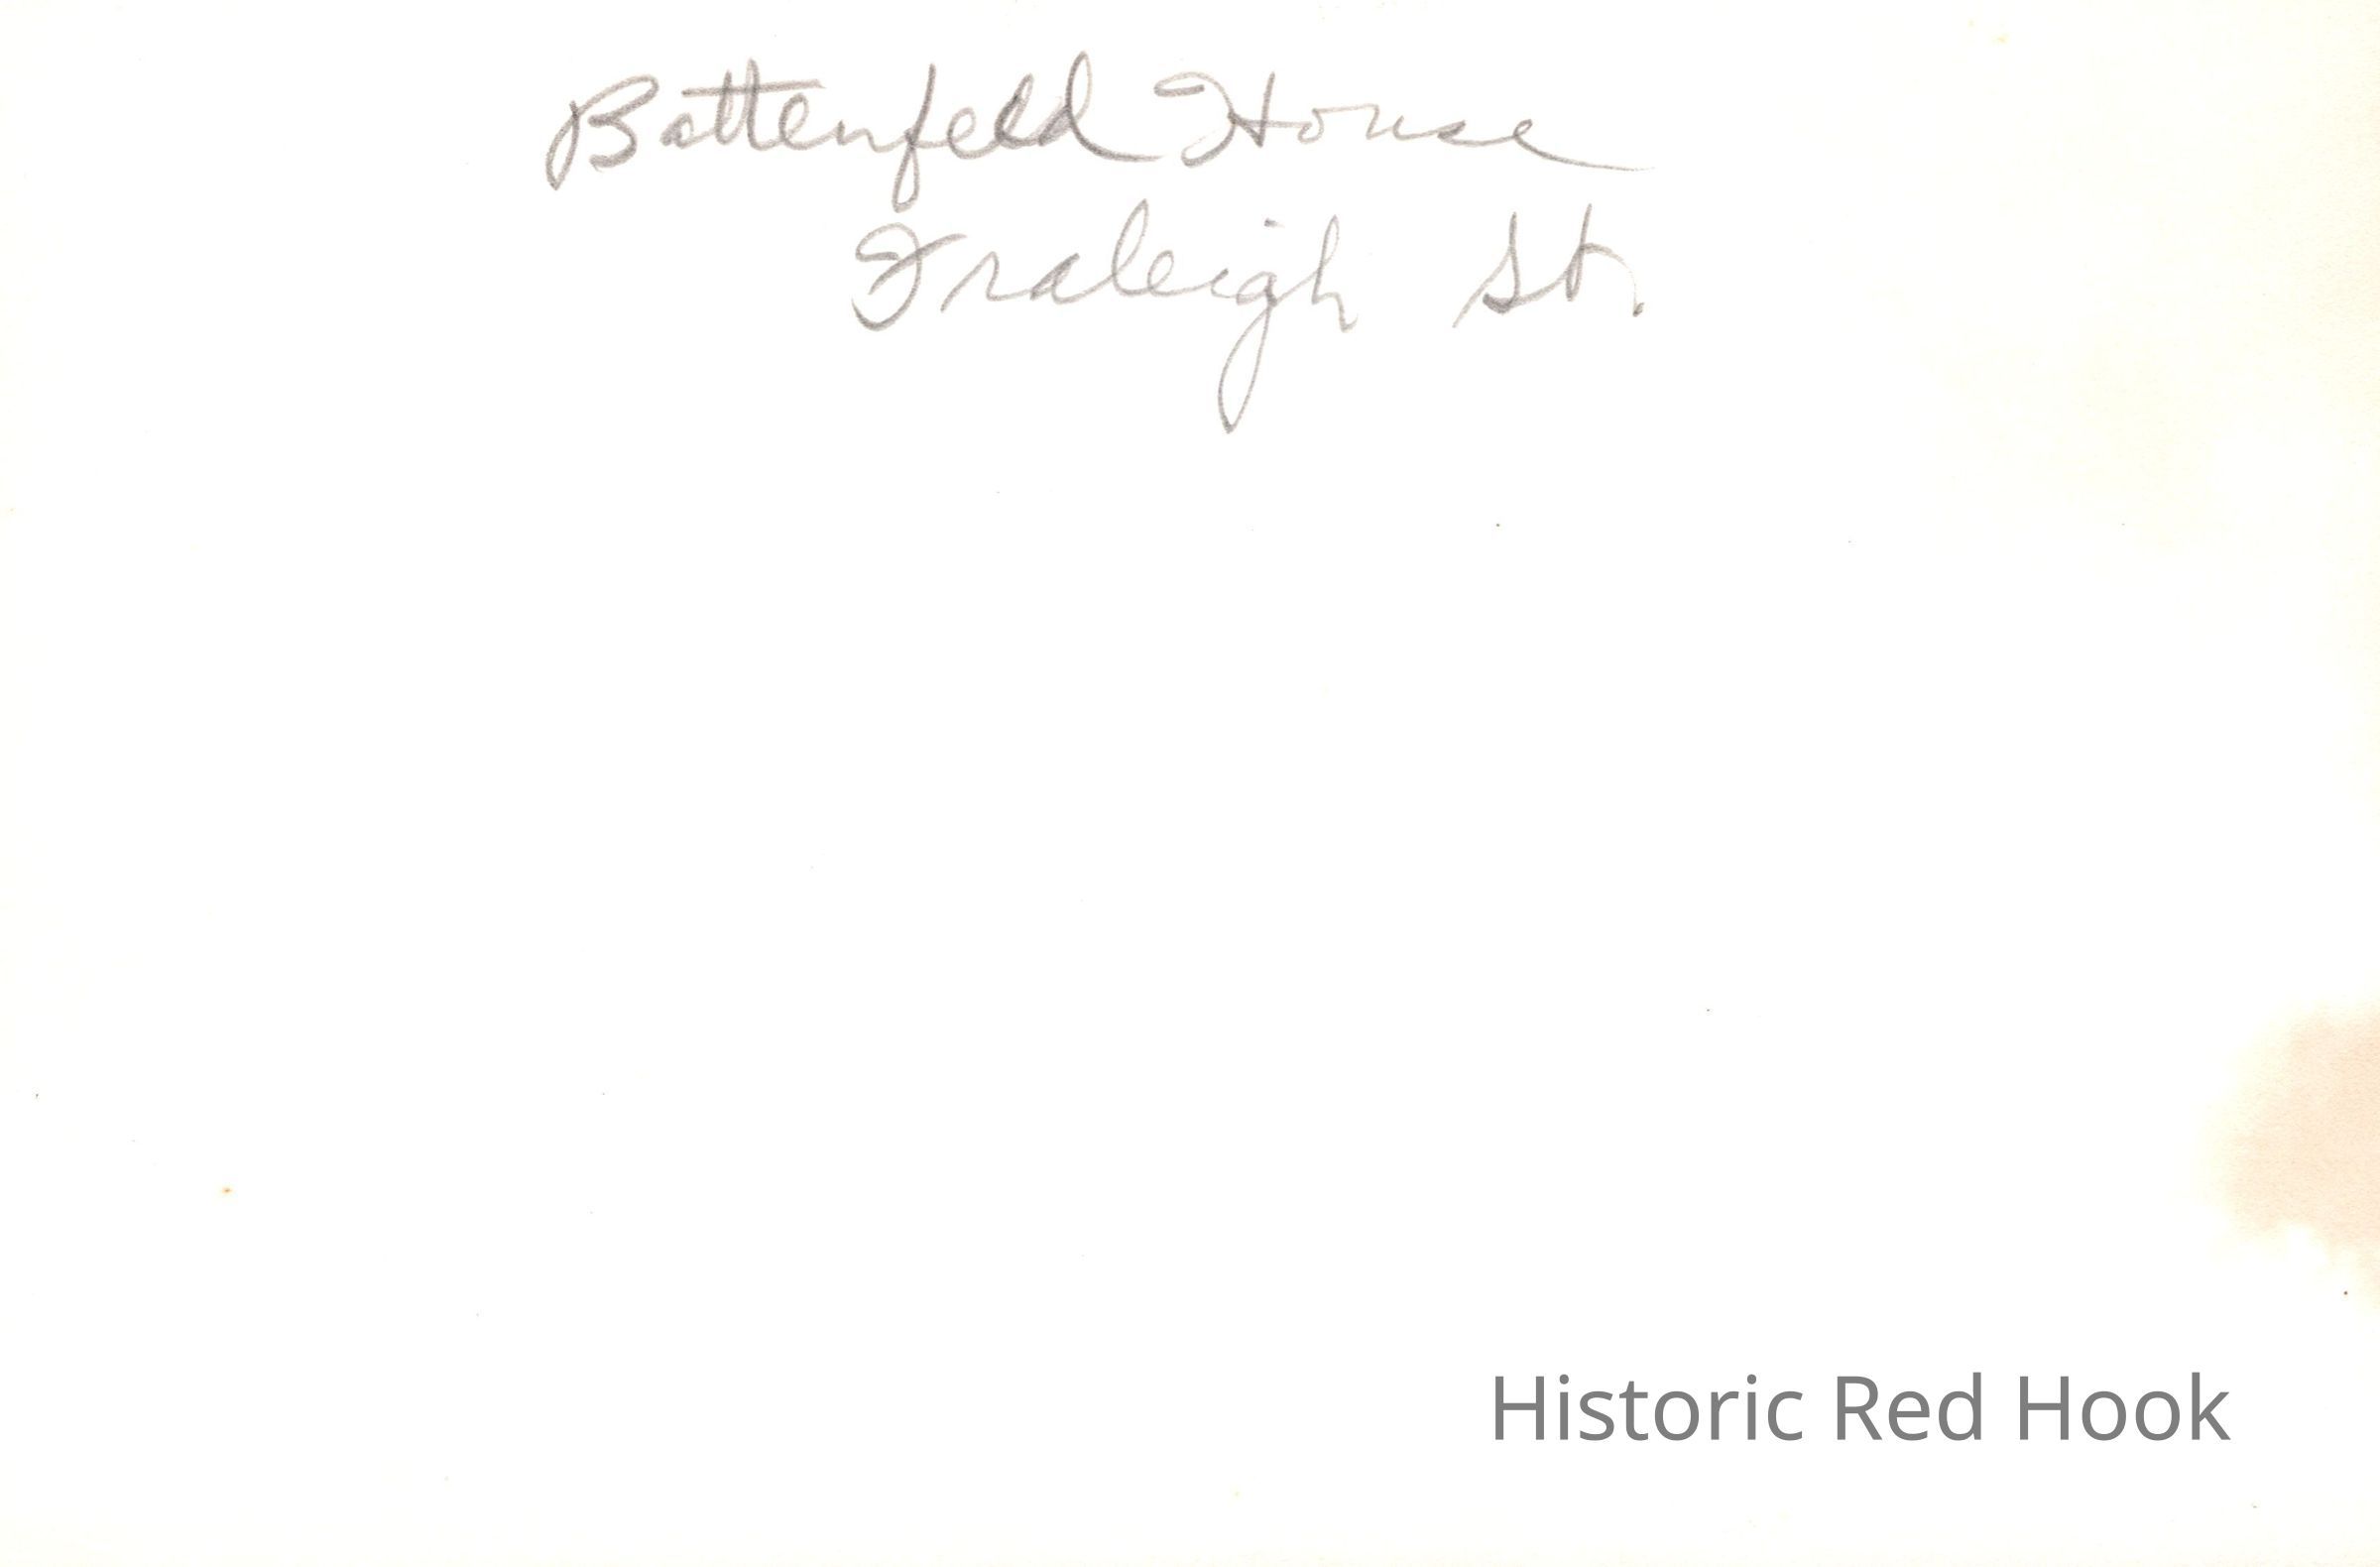 Battenfeld House
Fraleigh St.
Historic Red Hook